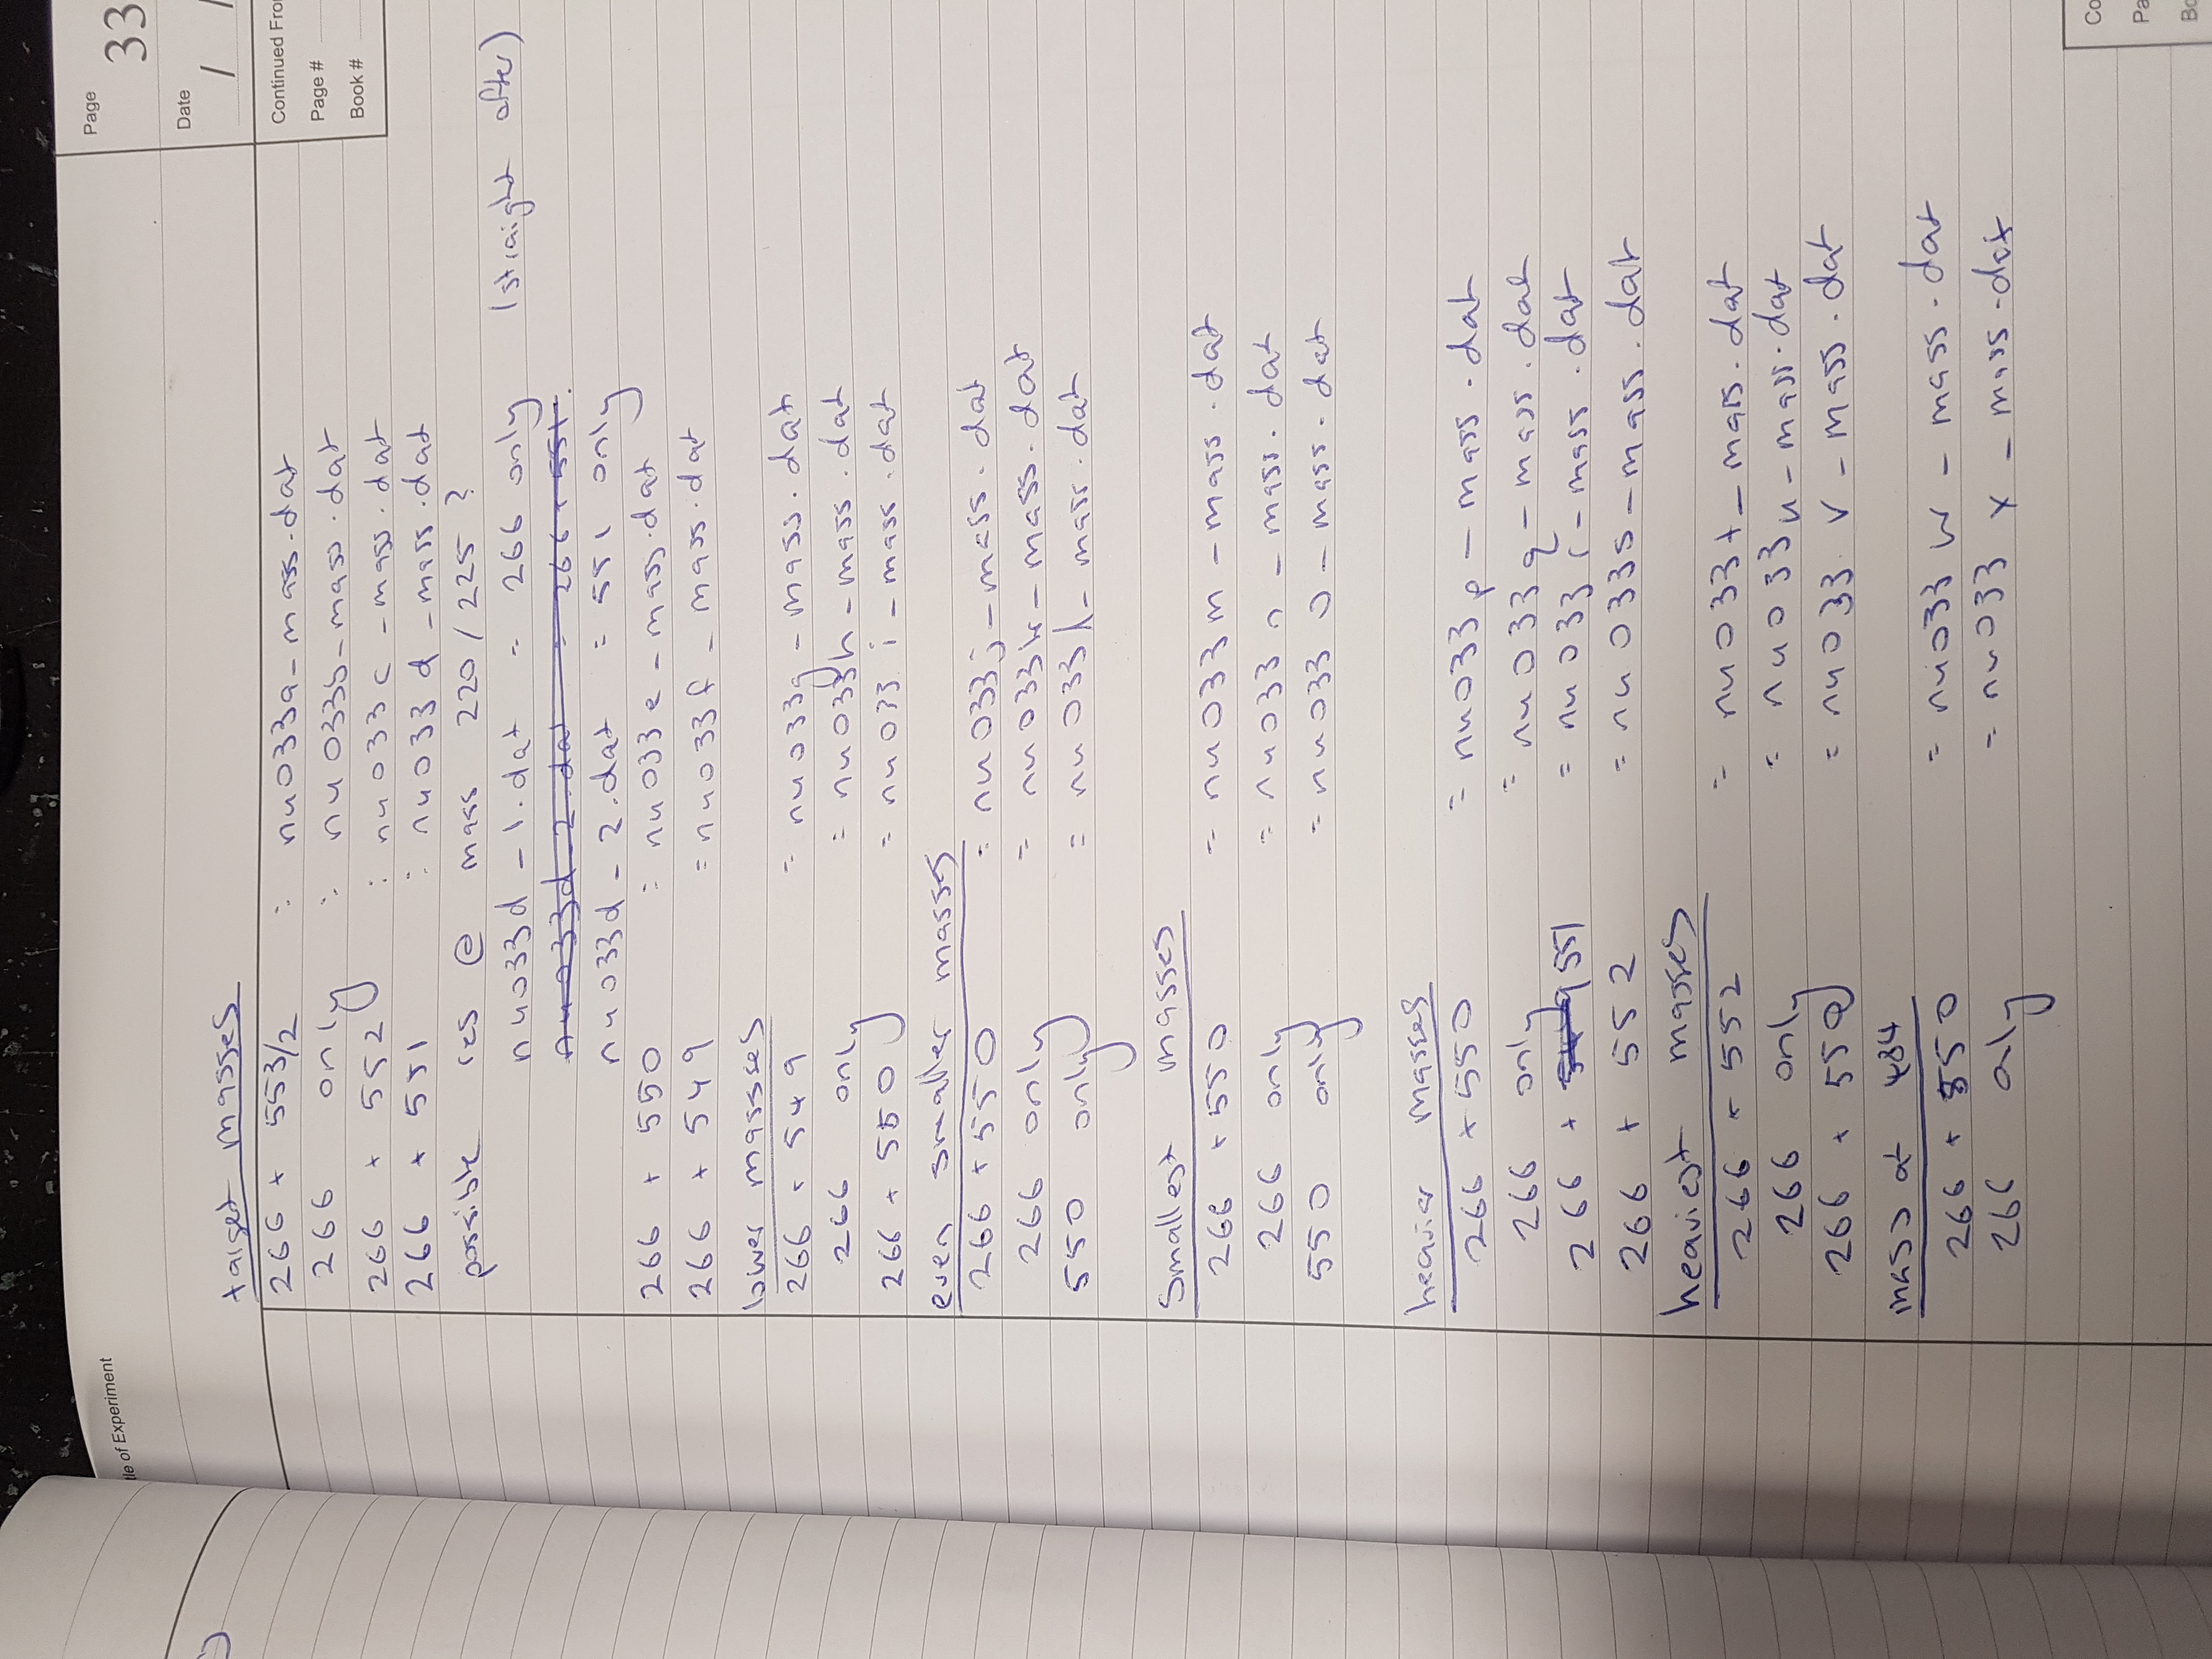 tle of Experiment
Page
33
Date
/ /
Continued Fro
Page #
Book #
target masses
266 + 553/2 : nu033a-mass.dat
266 only : nu033b-mass.dat
266 + 552 : nu033c-mass.dat
266 + 551 : nu033d-mass.dat
possible res @ mass 220/225 ?
nu033d-1.dat = 266 only (straight after)
nu033d-2.dat = 266+551.
nu033d-2.dat = 551 only
266 + 550 = nu033e-mass.dat
266 + 549 = nu033f-mass.dat
lower massses
266 + 549 = nu033g-mass.dat
266 only = nu033h-mass.dat
266 + 550 = nu033i-mass.dat
even smaller masses
266 + 550 = nu033j-mass.dat
266 only = nu033k-mass.dat
550 only = nu033l-mass.dat
Smallest masses
266 + 550 = nu033m-mass.dat
266 only = nu033n-mass.dat
550 only = nu033o-mass.dat
heavier masses
266 + 550 = nu033p-mass.dat
266 only = nu033q-mass.dat
266 + 549 551 = nu033r-mass.dat
266 + 552 = nu033s-mass.dat
heaviest masses
266 + 552 = nu033t-mass.dat
266 only = nu033u-mass.dat
266 + 550 = nu033v-mass.dat
mass at 484
266 + 550 = nu033w-mass.dat
266 only = nu033x-mass.dat
Co
Pa
Bo